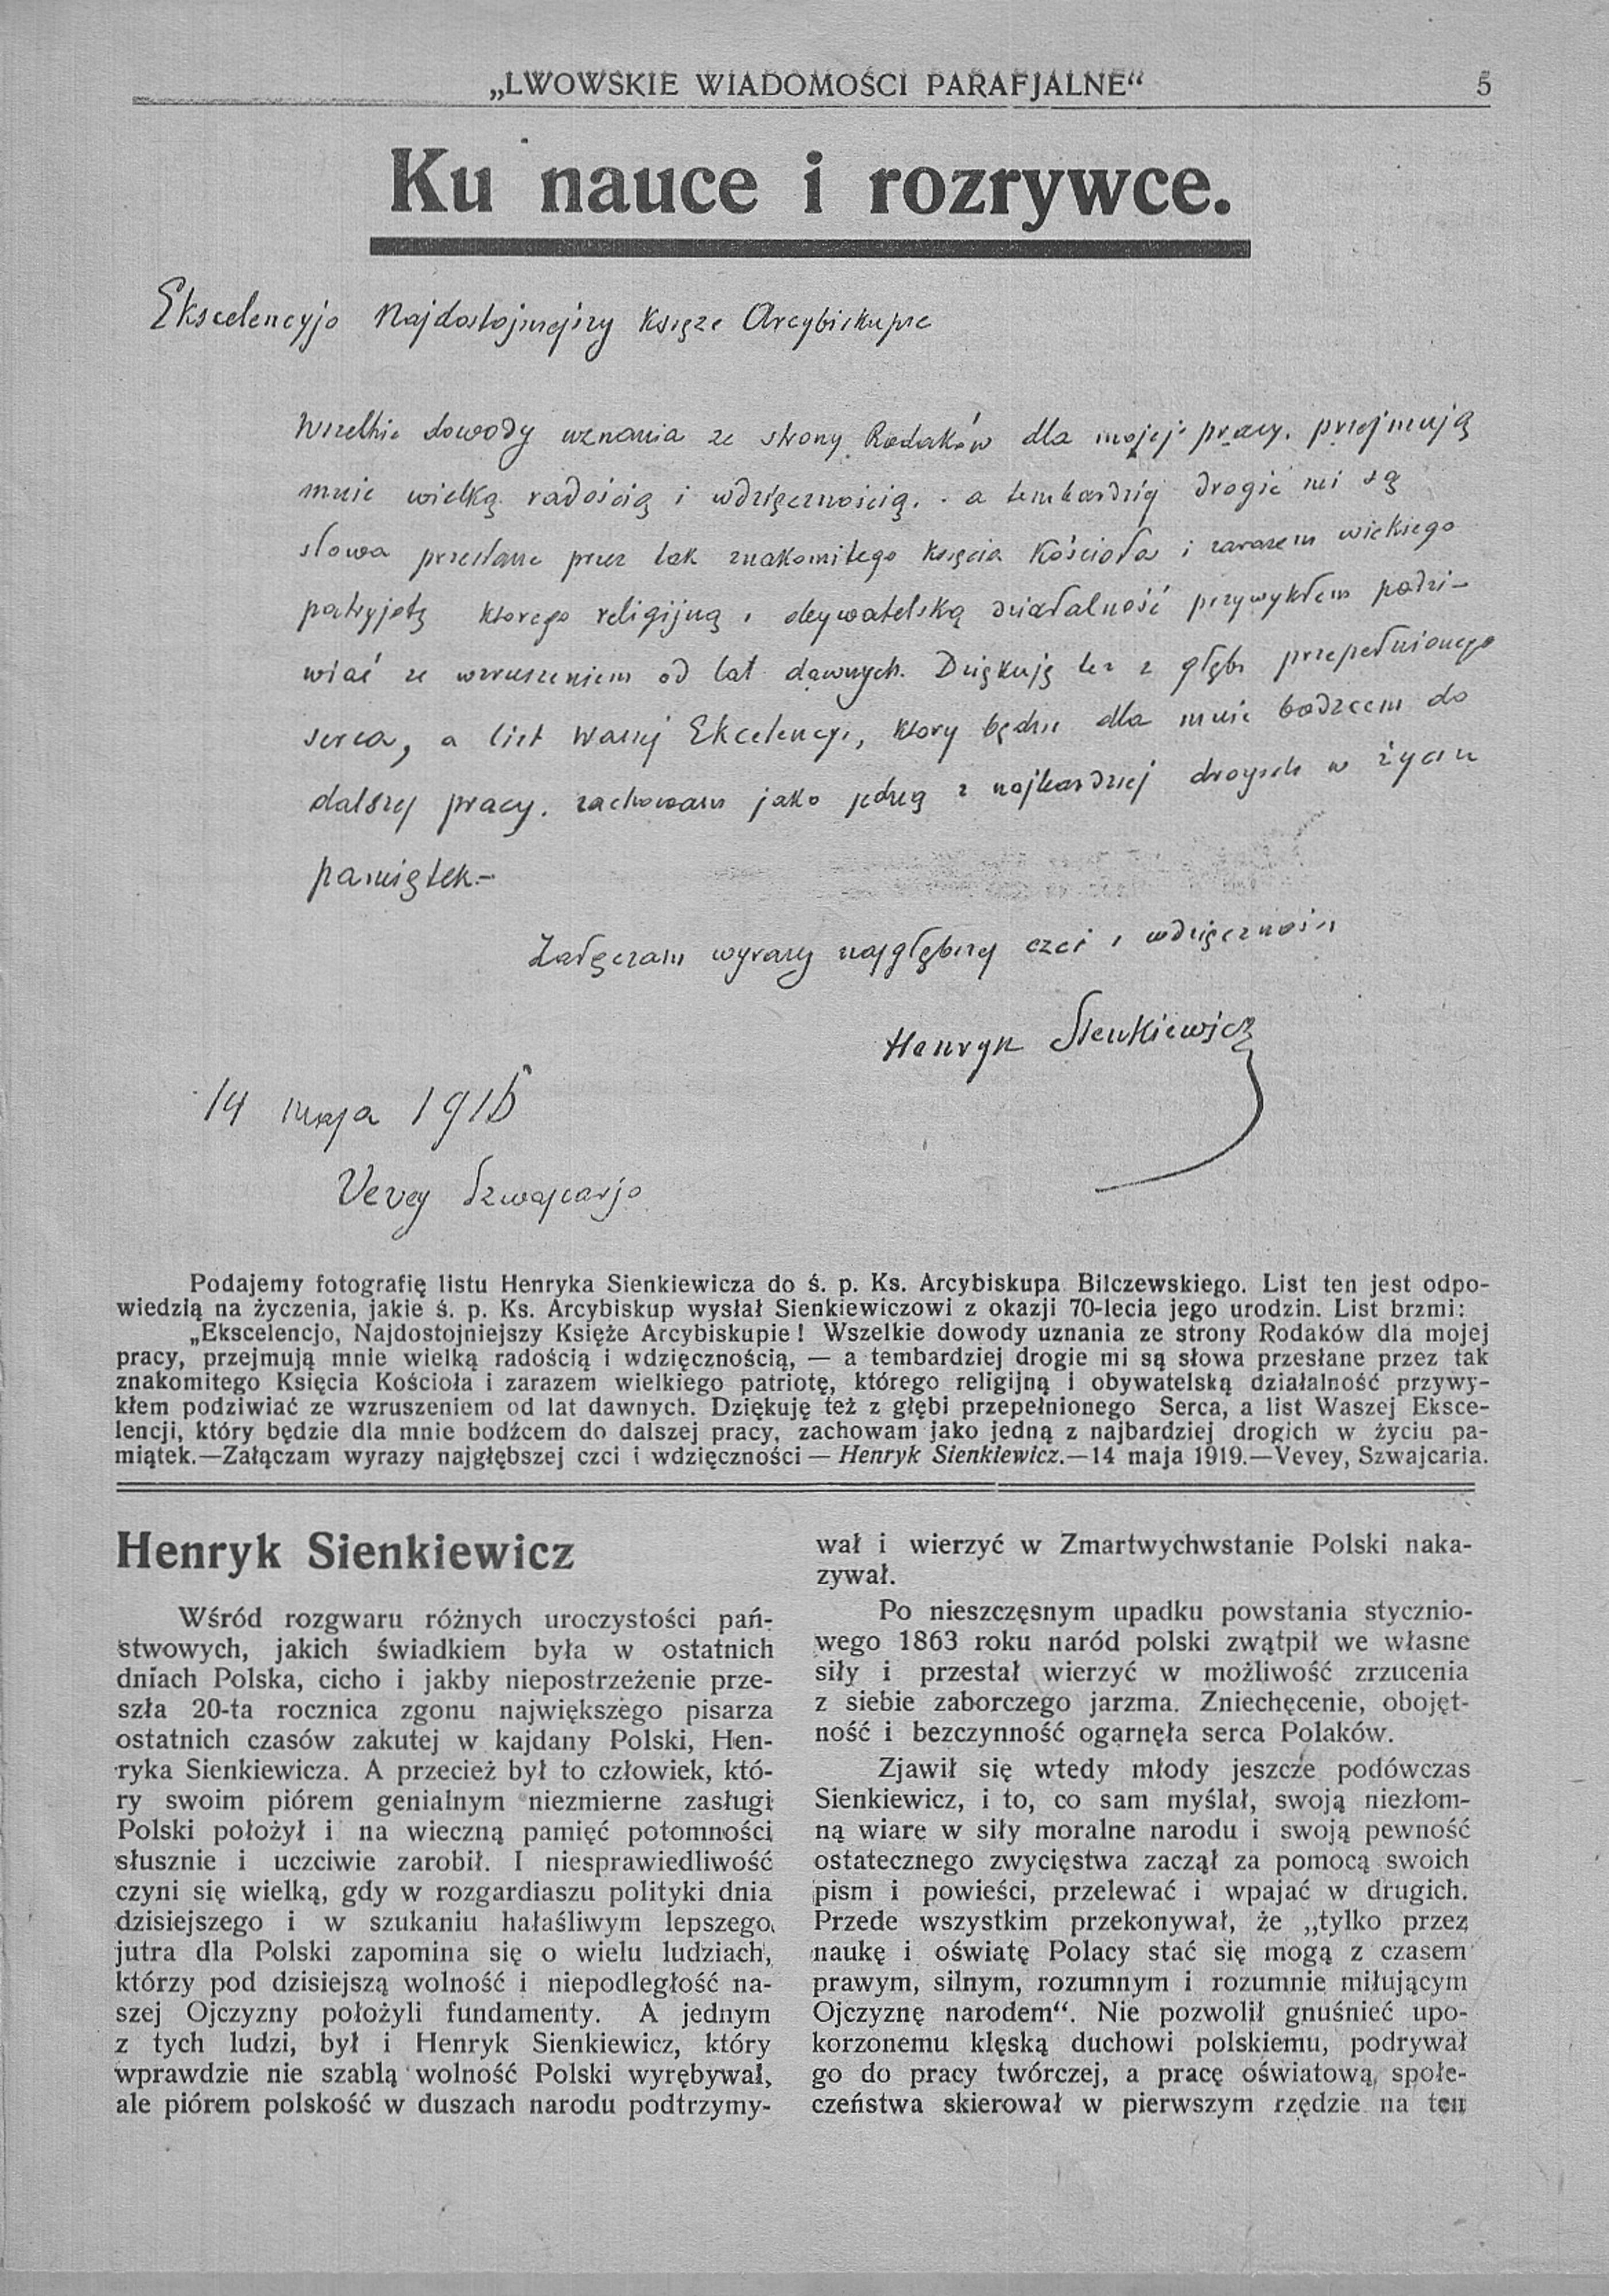 „LWOWSKIE WIADOMOŚCI PARAFJALNE“ 5
Ku nauce i rozrywce.
Ekscelencyjo Najdostojniejszy Księże Arcybiskupie
Wszelkie dowody uznania ze strony Rodaków dla mojej pracy, przejmują
mnie wielką radością i wdzięcznością, - a tembardziej drogie mi są
słowa przesłane przez tak znakomitego Księcia Kościoła i zarazem wielkiego
patryjotę którego religijną i obywatelską działalność przywykłem podzi-
wiać ze wzruszeniem od lat dawnych. Dziękuję też z głębi przepełnionego
serca, a list Waszej Ekcelencyi, który będzie dla mnie bodźcem do
dalszej pracy, zachowam jako jedną z najbardziej drogich w życiu
pamiątek.-
Załączam wyrazy najgłębszej czci i wdzięczności
Henryk Sienkiewicz
14 maja 1916
Vevey Szwajcarja
Podajemy fotografię listu Henryka Sienkiewicza do ś. p. Ks. Arcybiskupa Bilczewskiego. List ten jest odpo-
wiedzią na życzenia, jakie ś. p. Ks. Arcybiskup wysłał Sienkiewiczowi z okazji 70-lecia jego urodzin. List brzmi:
„Ekscelencjo, Najdostojniejszy Księże Arcybiskupie! Wszelkie dowody uznania ze strony Rodaków dla mojej
pracy, przejmują mnie wielką radością i wdzięcznością, — a tembardziej drogie mi są słowa przesłane przez tak
znakomitego Księcia Kościoła i zarazem wielkiego patriotę, którego religijną i obywatelską działalność przywy-
kłem podziwiać ze wzruszeniem od lat dawnych. Dziękuję też z głębi przepełnionego Serca, a list Waszej Eksce-
lencji, który będzie dla mnie bodźcem do dalszej pracy, zachowam jako jedną z najbardziej drogich w życiu pa-
miątek.—Załączam wyrazy najgłębszej czci i wdzięczności — Henryk Sienkiewicz.—14 maja 1919.—Vevey, Szwajcaria.
Henryk Sienkiewicz
Wśród rozgwaru różnych uroczystości pań-
stwowych, jakich świadkiem była w ostatnich
dniach Polska, cicho i jakby niepostrzeżenie prze-
szła 20-ta rocznica zgonu największego pisarza
ostatnich czasów zakutej w kajdany Polski, Hen-
ryka Sienkiewicza. A przecież był to człowiek, któ-
ry swoim piórem genialnym niezmierne zasługi
Polski położył i na wieczną pamięć potomności
słusznie i uczciwie zarobił. I niesprawiedliwość
czyni się wielką, gdy w rozgardiaszu polityki dnia
dzisiejszego i w szukaniu hałaśliwym lepszego
jutra dla Polski zapomina się o wielu ludziach,
którzy pod dzisiejszą wolność i niepodległość na-
szej Ojczyzny położyli fundamenty. A jednym
z tych ludzi, był i Henryk Sienkiewicz, który
wprawdzie nie szablą wolność Polski wyrębywał,
ale piórem polskość w duszach narodu podtrzymy-
wał i wierzyć w Zmartwychwstanie Polski naka-
zywał.
Po nieszczęsnym upadku powstania stycznio-
wego 1863 roku naród polski zwątpił we własne
siły i przestał wierzyć w możliwość zrzucenia
z siebie zaborczego jarzma. Zniechęcenie, obojęt-
ność i bezczynność ogarnęła serca Polaków.
Zjawił się wtedy młody jeszcze podówczas
Sienkiewicz, i to, co sam myślał, swoją niezłom-
ną wiarę w siły moralne narodu i swoją pewność
ostatecznego zwycięstwa zaczął za pomocą swoich
pism i powieści, przelewać i wpajać w drugich.
Przede wszystkim przekonywał, że „tylko przez
naukę i oświatę Polacy stać się mogą z czasem
prawym, silnym, rozumnym i rozumnie miłującym
Ojczyznę narodem“. Nie pozwolił gnuśnieć upo-
korzonemu klęską duchowi polskiemu, podrywał
go do pracy twórczej, a pracę oświatową, społe-
czeństwa skierował w pierwszym rzędzie na ten